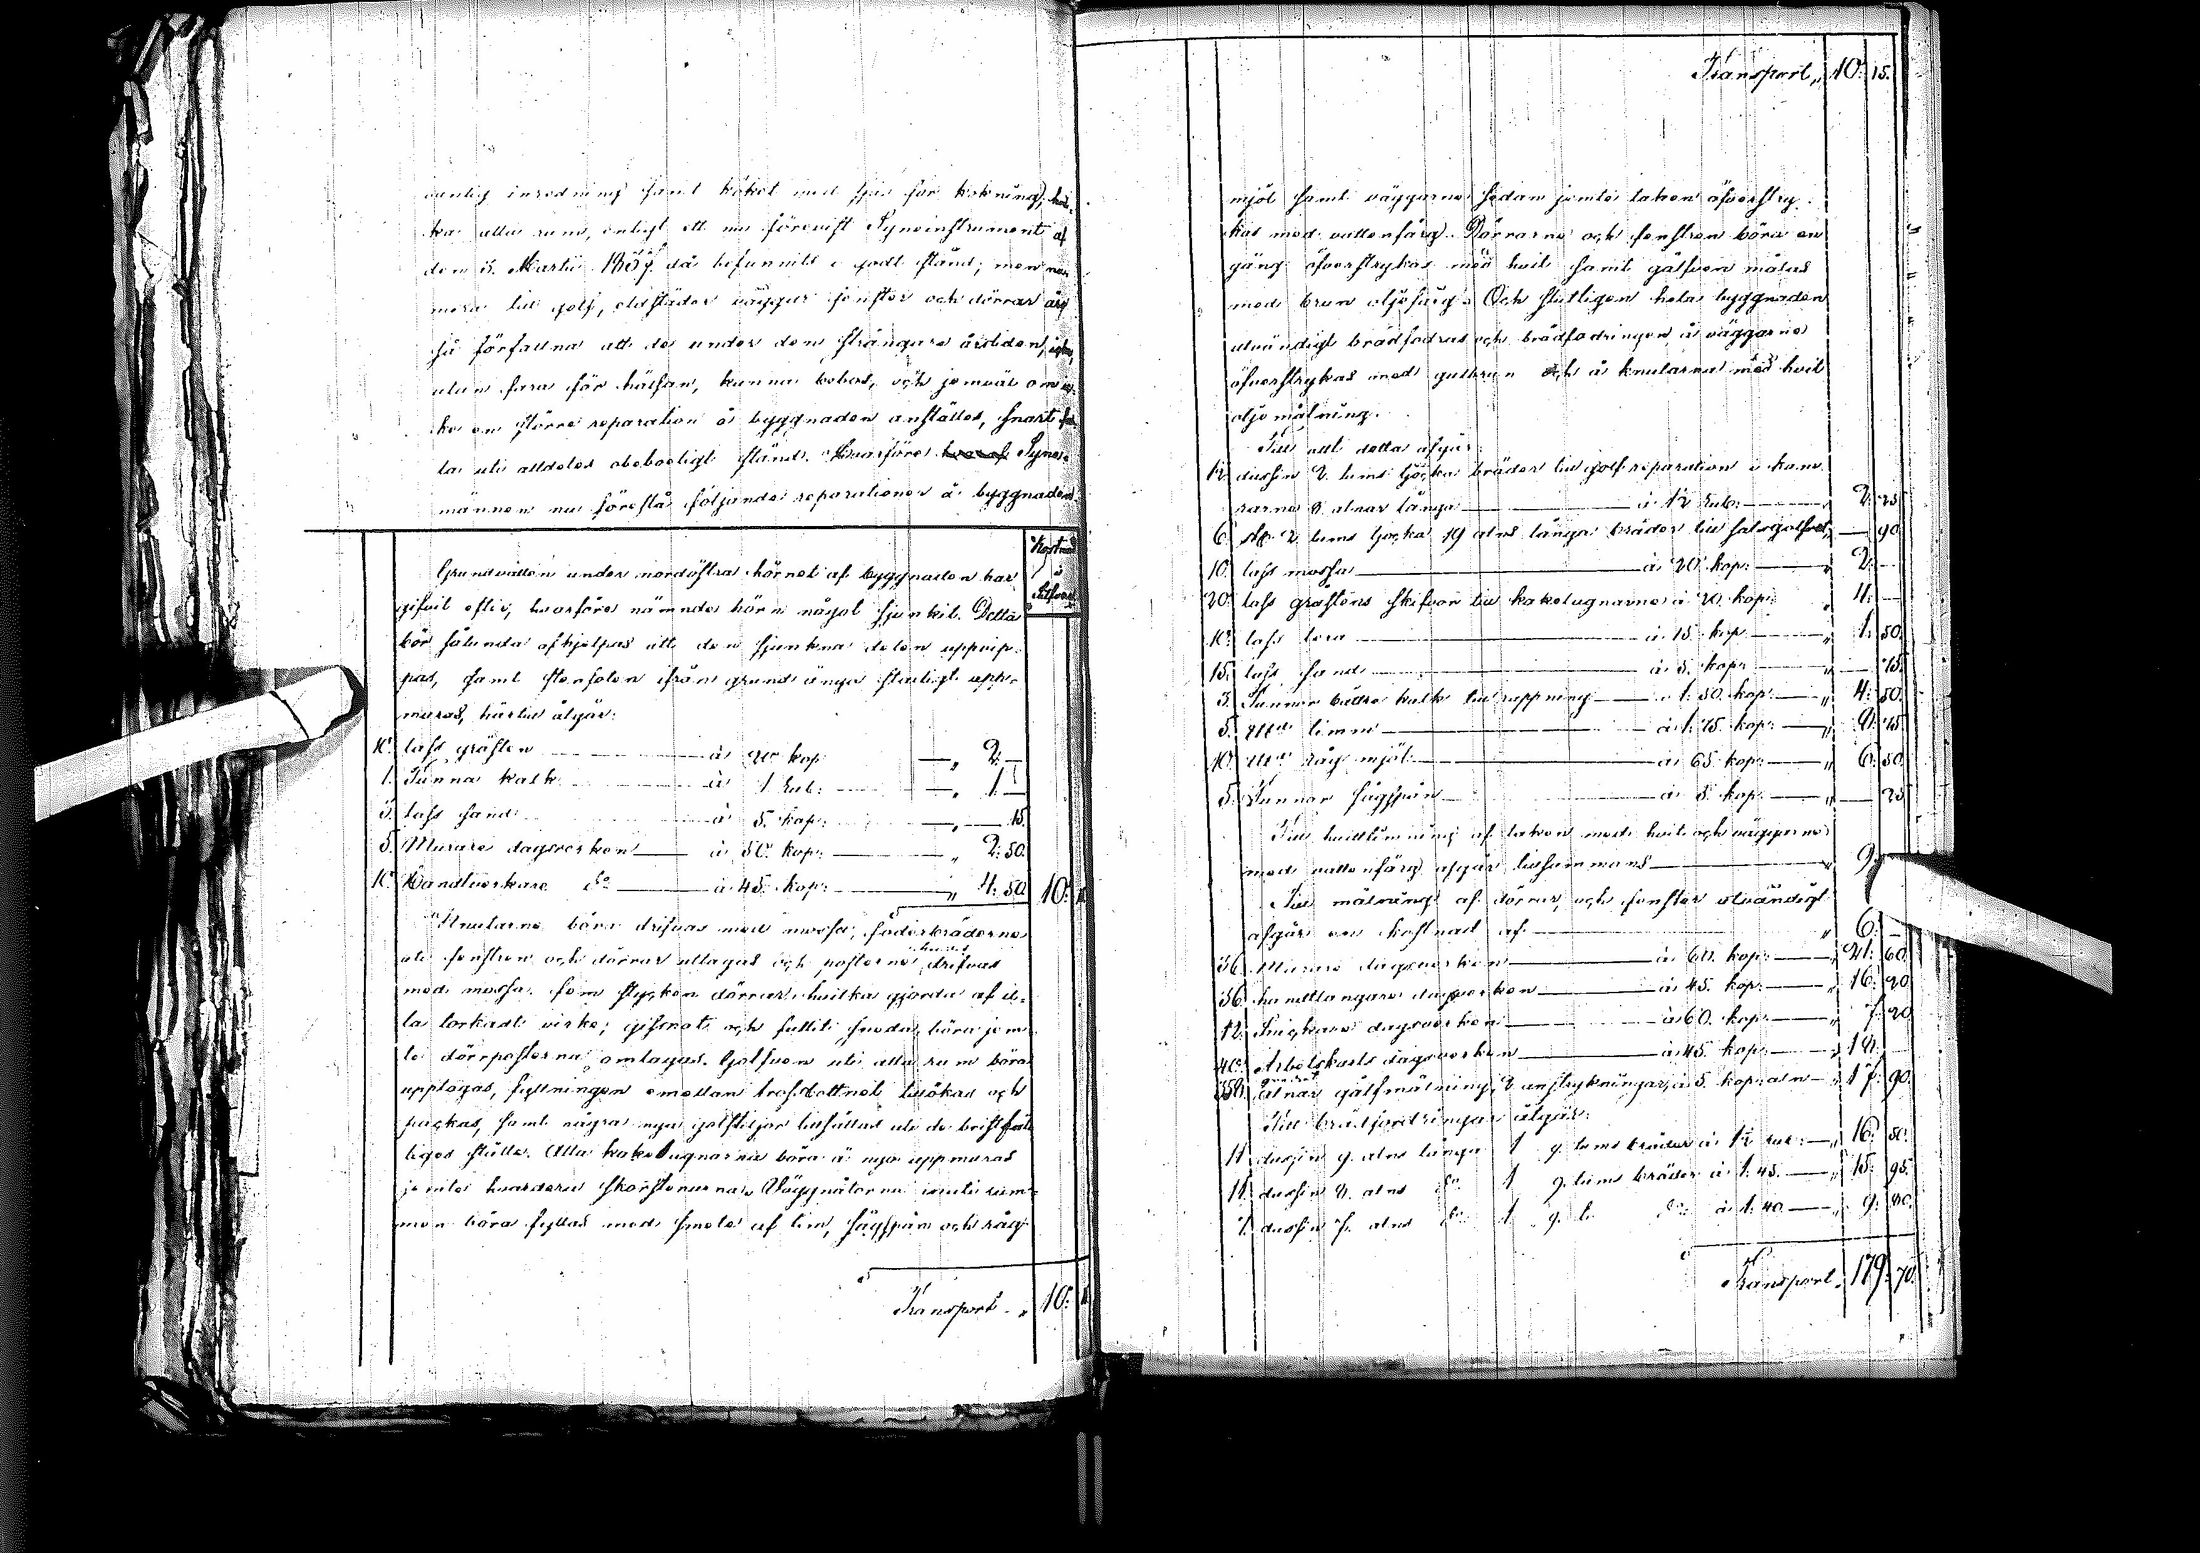 vanlig inredning samt köket med spis för kokning, hvil-
ka alla rum, enligt ett nu företedt Syneinstrument af
den 3. Martii 1857. då befunnits i godt stånd; men num-
mera till golf, eldstäder väggar fenster och dörrar äro
så förfallna att de under den strängare årstiden, icke,
utan fara för hälsan, kunna bebos, och jemväl om ic-
ke en större reparation å byggnaden anställes, snart
la uti alldeles obeboeligt stånd. Hvarföre Syne-
männen nu föreslå följande reparationer å byggnaden.
Kostnad
i
Silfver
Grundvallen under nordöstra hörnet af byggnaden har
gifvit efter, hvarföre nämnde hörn något sjunkit. Detta
bör sålunda afhjelpas att den sjunkna delen uppvip-
pas, samt stenfoten ifrån grund ånyo stadigt upp-
muras, härtill åtgår:
10. lass gråsten à 20 kop. 2. —
1. Tunna kalk à 1 Rub: 1. —
3. lass sand à 5. kop: 15.
5. Murare dagsverken à 50. kop: 2: 50.
10. Handtverkare do à 45. kop: 4: 50 10:
Knutarne böra drifvas med mossa, foderbräderne
uti fenstren och dörrar uttagas och posterne drifvas
med mossa. fem stycken dörrar, hvilka gjorda af il-
la torkadt virke, gistnat och fallit sneda, böra jem-
te dörrposterna omlagas. Golfven uti alla rum böra
upptagas, fyllningen emellan trossbottnet tillökas och
packas, samt några nya golftiljor tillsättas uti de bristfäl-
liges ställe. Alla kakelugnarna böra å nyo uppmuras
jemte hvardera skorstenarna. Väggnåtarna inuti rum-
men böra fyllas med smet af lim, sågspån och råg-
Transport " 10:
Transport " 10: 15.
mjöl samt väggarne sedan jemte taken öfverstry-
kas med vattenfärg. Dörrarne och fenstren böra en
gång öfverstrykas med hvit samt golfven målas
med brun oljefärg. Och slutligen hela byggnaden
utvändigt brädfodras och brädfodringen å väggarne
öfverstrykas med gulbrun och å knutarna med hvit
oljemålning.
Till allt detta åtgår:
1½ dussin 2. tums tjocka bräder till golf reparation i kam-
rarne 8 alnar långa à 1½ Rub: 2: 25
6. st. 2 tums tjocka 19 alns långa bräder till salsgolfvet — 90
10. lass mossa à 20. kop: 2: —
20. lass gråstens skifvor till kakelugnarne à 20. kop: 4: —
10. lass lera à 15. kop 1: 50.
15. lass sand à 5. kop: — 75.
3. Tunnor bättre kalk till rappning à 1. 50. kop: 4: 50.
5. limm à 1. 75. kop: 8: 75
10. råg mjöl à 65. kop: 6: 50
5. Tunnor sågspån à 5. kop: — 25
Till hvitlimning af taken med hvit och väggarne
med vattenfärg åtgår tillsammans 9.
Till målning af dörrar och fenster utvändigt
åtgår en kostnad af 6. —
36. Murare dagsverken à 60. kop: 21: 60
36. handtlangare dagsverken à 45. kop: 16: 20
12. Snickare dagsverken à 60. kop: 7: 20
40. Arbetskarls dagsverken à 45. kop: 18. —
358. alnar golfmålning, 2 anstrykningar, à 5. kop: aln 17: 90.
Till brädfordringar åtgår:
11 dussin 9. alns långa 1 q. tums bräder à 1½ rub: 16: 50.
11. dussin 8. alns do 1 q. tums bräder à 1. 45. 15: 95.
7. dussin 7. alns do 1 q. t. do à 1. 40. 9: 80.
Transport. 179: 70.